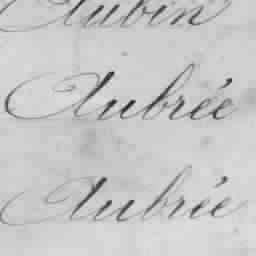 Aubin
Aubrée
Aubrée